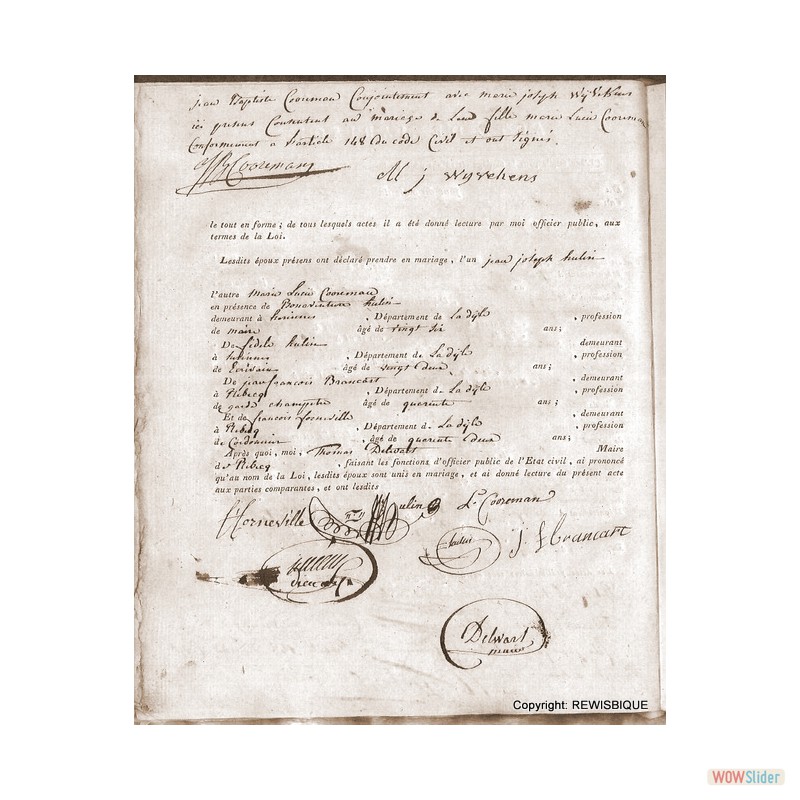 jean Baptiste Cooreman Conjointement avec marie joseph Wyvekens
ici présens Consentent au mariage de Leur fille marie Lucie Cooreman
Conformement a l'article 148 du code Civil et ont signés.
JB Cooreman
M j wyvekens
le tout en forme ; de tous lesquels actes il a été donné lecture par moi officier public, aux
termes de la Loi.
Lesdits époux présens ont déclaré prendre en mariage, l'un jean joseph hulin
l'autre Marie Lucie Cooreman
en présence de Bonaventure hulin
demeurant à , Département de La dyle , profession
de maire âgé de vingt six ans;
De fidele hulin demeurant
à , Département de La dyle , profession
de Ecrivain âgé de vingt deux ans;
De jean francois Brancart , demeurant
à Rebecq , Département de La dyle , profession
de garde champetre âgé de quarente ans;
Et de francois , demeurant
à Rebecq , Département de La dyle , profession
de Cordonnier , âgé de quarente deux ans;
Après quoi, moi, Thomas Delwart Maire
de Rebecq , faisant les fonctions d'officier public de l'Etat civil, ai prononcé
qu'au nom de la Loi, lesdits époux sont unis en mariage, et ai donné lecture du présent acte
aux parties comparantes, et ont lesdits
horneville hulin L. Cooreman
hulin j f brancart
Delwart
maire
Copyright: REWISBIQUE
WOWSlider